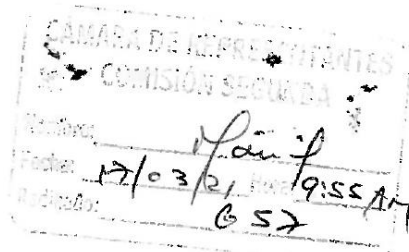 CÁMARA DE REPRESENTANTES
COMISIÓN SEGUNDA
Nombre:
Fecha: 17/03/21 Hora 9:55 AM
Radicado: 657